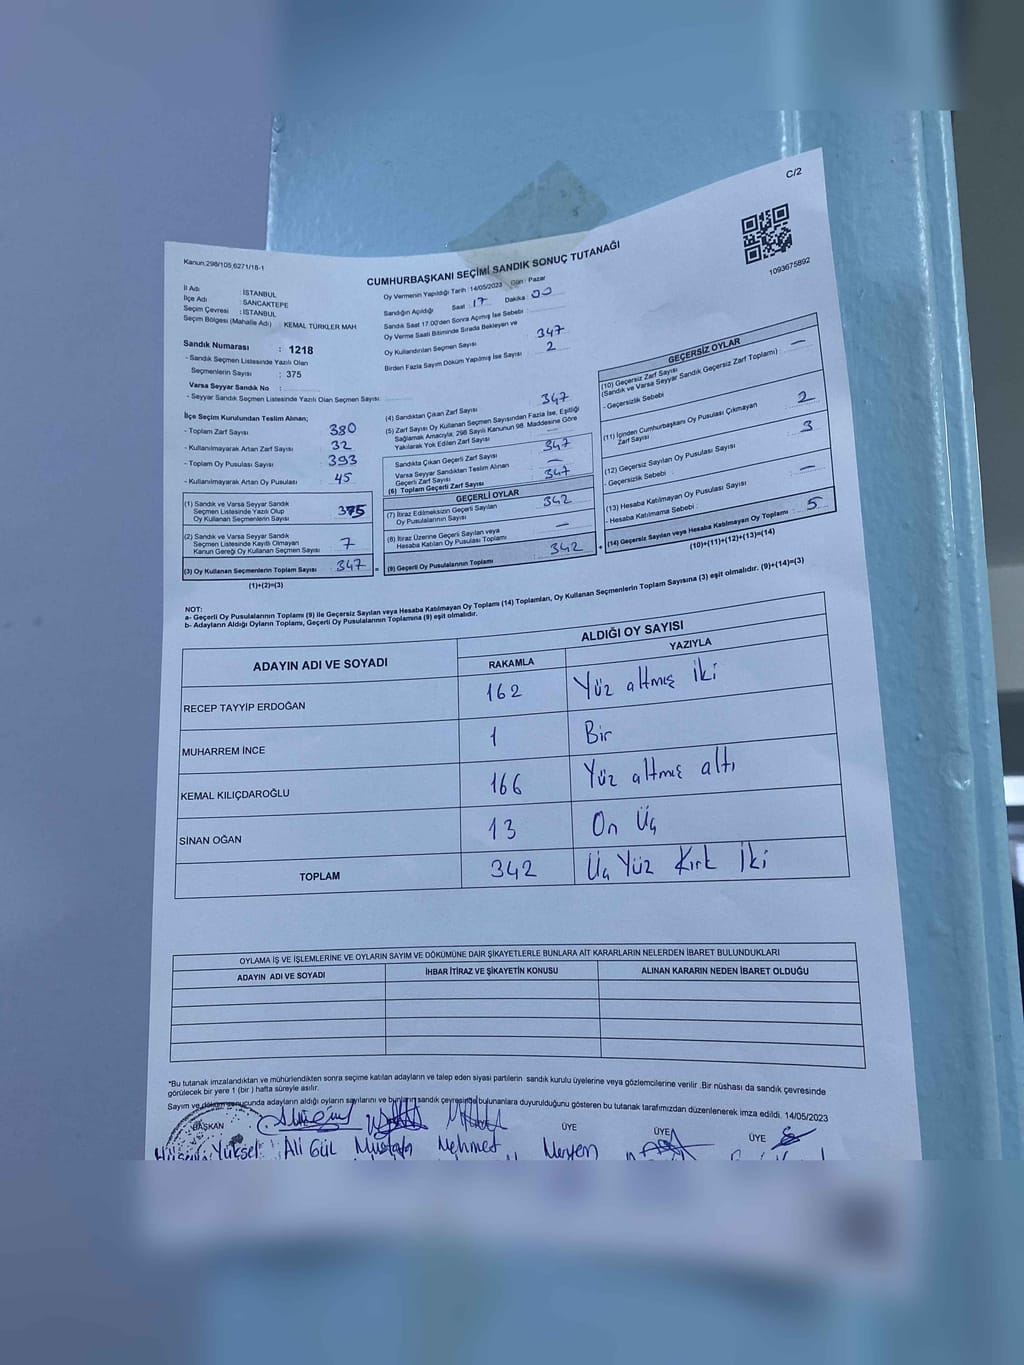 C/2
Kanun:298/105,6271/18-1
CUMHURBAŞKANI SEÇİMİ SANDIK SONUÇ TUTANAĞI
1093675892
İl Adı : İSTANBUL
İlçe Adı : SANCAKTEPE
Seçim Çevresi : İSTANBUL
Seçim Bölgesi (Mahalle Adı) : KEMAL TÜRKLER MAH
Sandık Numarası : 1218
- Sandık Seçmen Listesinde Yazılı Olan
Seçmenlerin Sayısı : 375
Varsa Seyyar Sandık No :
- Seyyar Sandık Seçmen Listesinde Yazılı Olan Seçmen Sayısı:
İlçe Seçim Kurulundan Teslim Alınan;
- Toplam Zarf Sayısı 380
- Kullanılmayarak Artan Zarf Sayısı 32
- Toplam Oy Pusulası Sayısı 393
- Kullanılmayarak Artan Oy Pusulası 45
(1) Sandık ve Varsa Seyyar Sandık
Seçmen Listesinde Yazılı Olup
Oy Kullanan Seçmenlerin Sayısı 375
(2) Sandık ve Varsa Seyyar Sandık
Seçmen Listesinde Kayıtlı Olmayan
Kanun Gereği Oy Kullanan Seçmen Sayısı 7
(3) Oy Kullanan Seçmenlerin Toplam Sayısı 347 =
(1)+(2)=(3)
Oy Vermenin Yapıldığı Tarih :14/05/2023 Gün : Pazar
Sandığın Açıldığı Saat : 17 Dakika : 00
Sandık Saat 17.00'den Sonra Açılmış İse Sebebi :
Oy Verme Saati Bitiminde Sırada Bekleyen ve
Oy Kullandırılan Seçmen Sayısı 347
Birden Fazla Sayım Döküm Yapılmış İse Sayısı 2
(4) Sandıktan Çıkan Zarf Sayısı 347
(5) Zarf Sayısı Oy Kullanan Seçmen Sayısından Fazla İse, Eşitliği
Sağlamak Amacıyla; 298 Sayılı Kanunun 98. Maddesine Göre
Yakılarak Yok Edilen Zarf Sayısı —
Sandıkta Çıkan Geçerli Zarf Sayısı 347
Varsa Seyyar Sandıktan Teslim Alınan
Geçerli Zarf Sayısı —
(6) Toplam Geçerli Zarf Sayısı 347
GEÇERLİ OYLAR
(7) İtiraz Edilmeksizin Geçerli Sayılan
Oy Pusulalarının Sayısı 342
(8) İtiraz Üzerine Geçerli Sayılan veya
Hesaba Katılan Oy Pusulası Toplamı —
(9) Geçerli Oy Pusulalarının Toplamı 342 +
GEÇERSİZ OYLAR
(10) Geçersiz Zarf Sayısı
(Sandık ve Varsa Seyyar Sandık Geçersiz Zarf Toplamı) —
- Geçersizlik Sebebi
(11) İçinden Cumhurbaşkanı Oy Pusulası Çıkmayan
Zarf Sayısı 2
(12) Geçersiz Sayılan Oy Pusulası Sayısı 3
- Geçersizlik Sebebi
(13) Hesaba Katılmayan Oy Pusulası Sayısı —
- Hesaba Katılmama Sebebi :
(14) Geçersiz Sayılan veya Hesaba Katılmayan Oy Toplamı : 5
(10)+(11)+(12)+(13)=(14)
NOT:
a- Geçerli Oy Pusulalarının Toplamı (9) ile Geçersiz Sayılan veya Hesaba Katılmayan Oy Toplamı (14) Toplamları, Oy Kullanan Seçmenlerin Toplam Sayısına (3) eşit olmalıdır. (9)+(14)=(3)
b- Adayların Aldığı Oyların Toplamı, Geçerli Oy Pusulalarının Toplamına (9) eşit olmalıdır.
ADAYIN ADI VE SOYADI ALDIĞI OY SAYISI
RAKAMLA YAZIYLA
RECEP TAYYİP ERDOĞAN 162 Yüz altmış iki
MUHARREM İNCE 1 Bir
KEMAL KILIÇDAROĞLU 166 Yüz altmış altı
SİNAN OĞAN 13 On Üç
TOPLAM 342 Üç Yüz Kırk İki
OYLAMA İŞ VE İŞLEMLERİNE VE OYLARIN SAYIM VE DÖKÜMÜNE DAİR ŞİKAYETLERLE BUNLARA AİT KARARLARIN NELERDEN İBARET BULUNDUKLARI
ADAYIN ADI VE SOYADI İHBAR İTİRAZ VE ŞİKAYETİN KONUSU ALINAN KARARIN NEDEN İBARET OLDUĞU
*Bu tutanak imzalandıktan ve mühürlendikten sonra seçime katılan adayların ve talep eden siyasi partilerin sandık kurulu üyelerine veya gözlemcilerine verilir .Bir nüshası da sandık çevresinde
görülecek bir yere 1 (bir ) hafta süreyle asılır.
Sayım ve döküm sonucunda adayların aldığı oyların sayılarını ve bunların sandık çevresinde bulunanlara duyurulduğunu gösteren bu tutanak tarafımızdan düzenlenerek imza edildi. 14/05/2023
BAŞKAN ÜYE ÜYE ÜYE
Yüksel Ali Gül Mustafa Mehmet Meryem